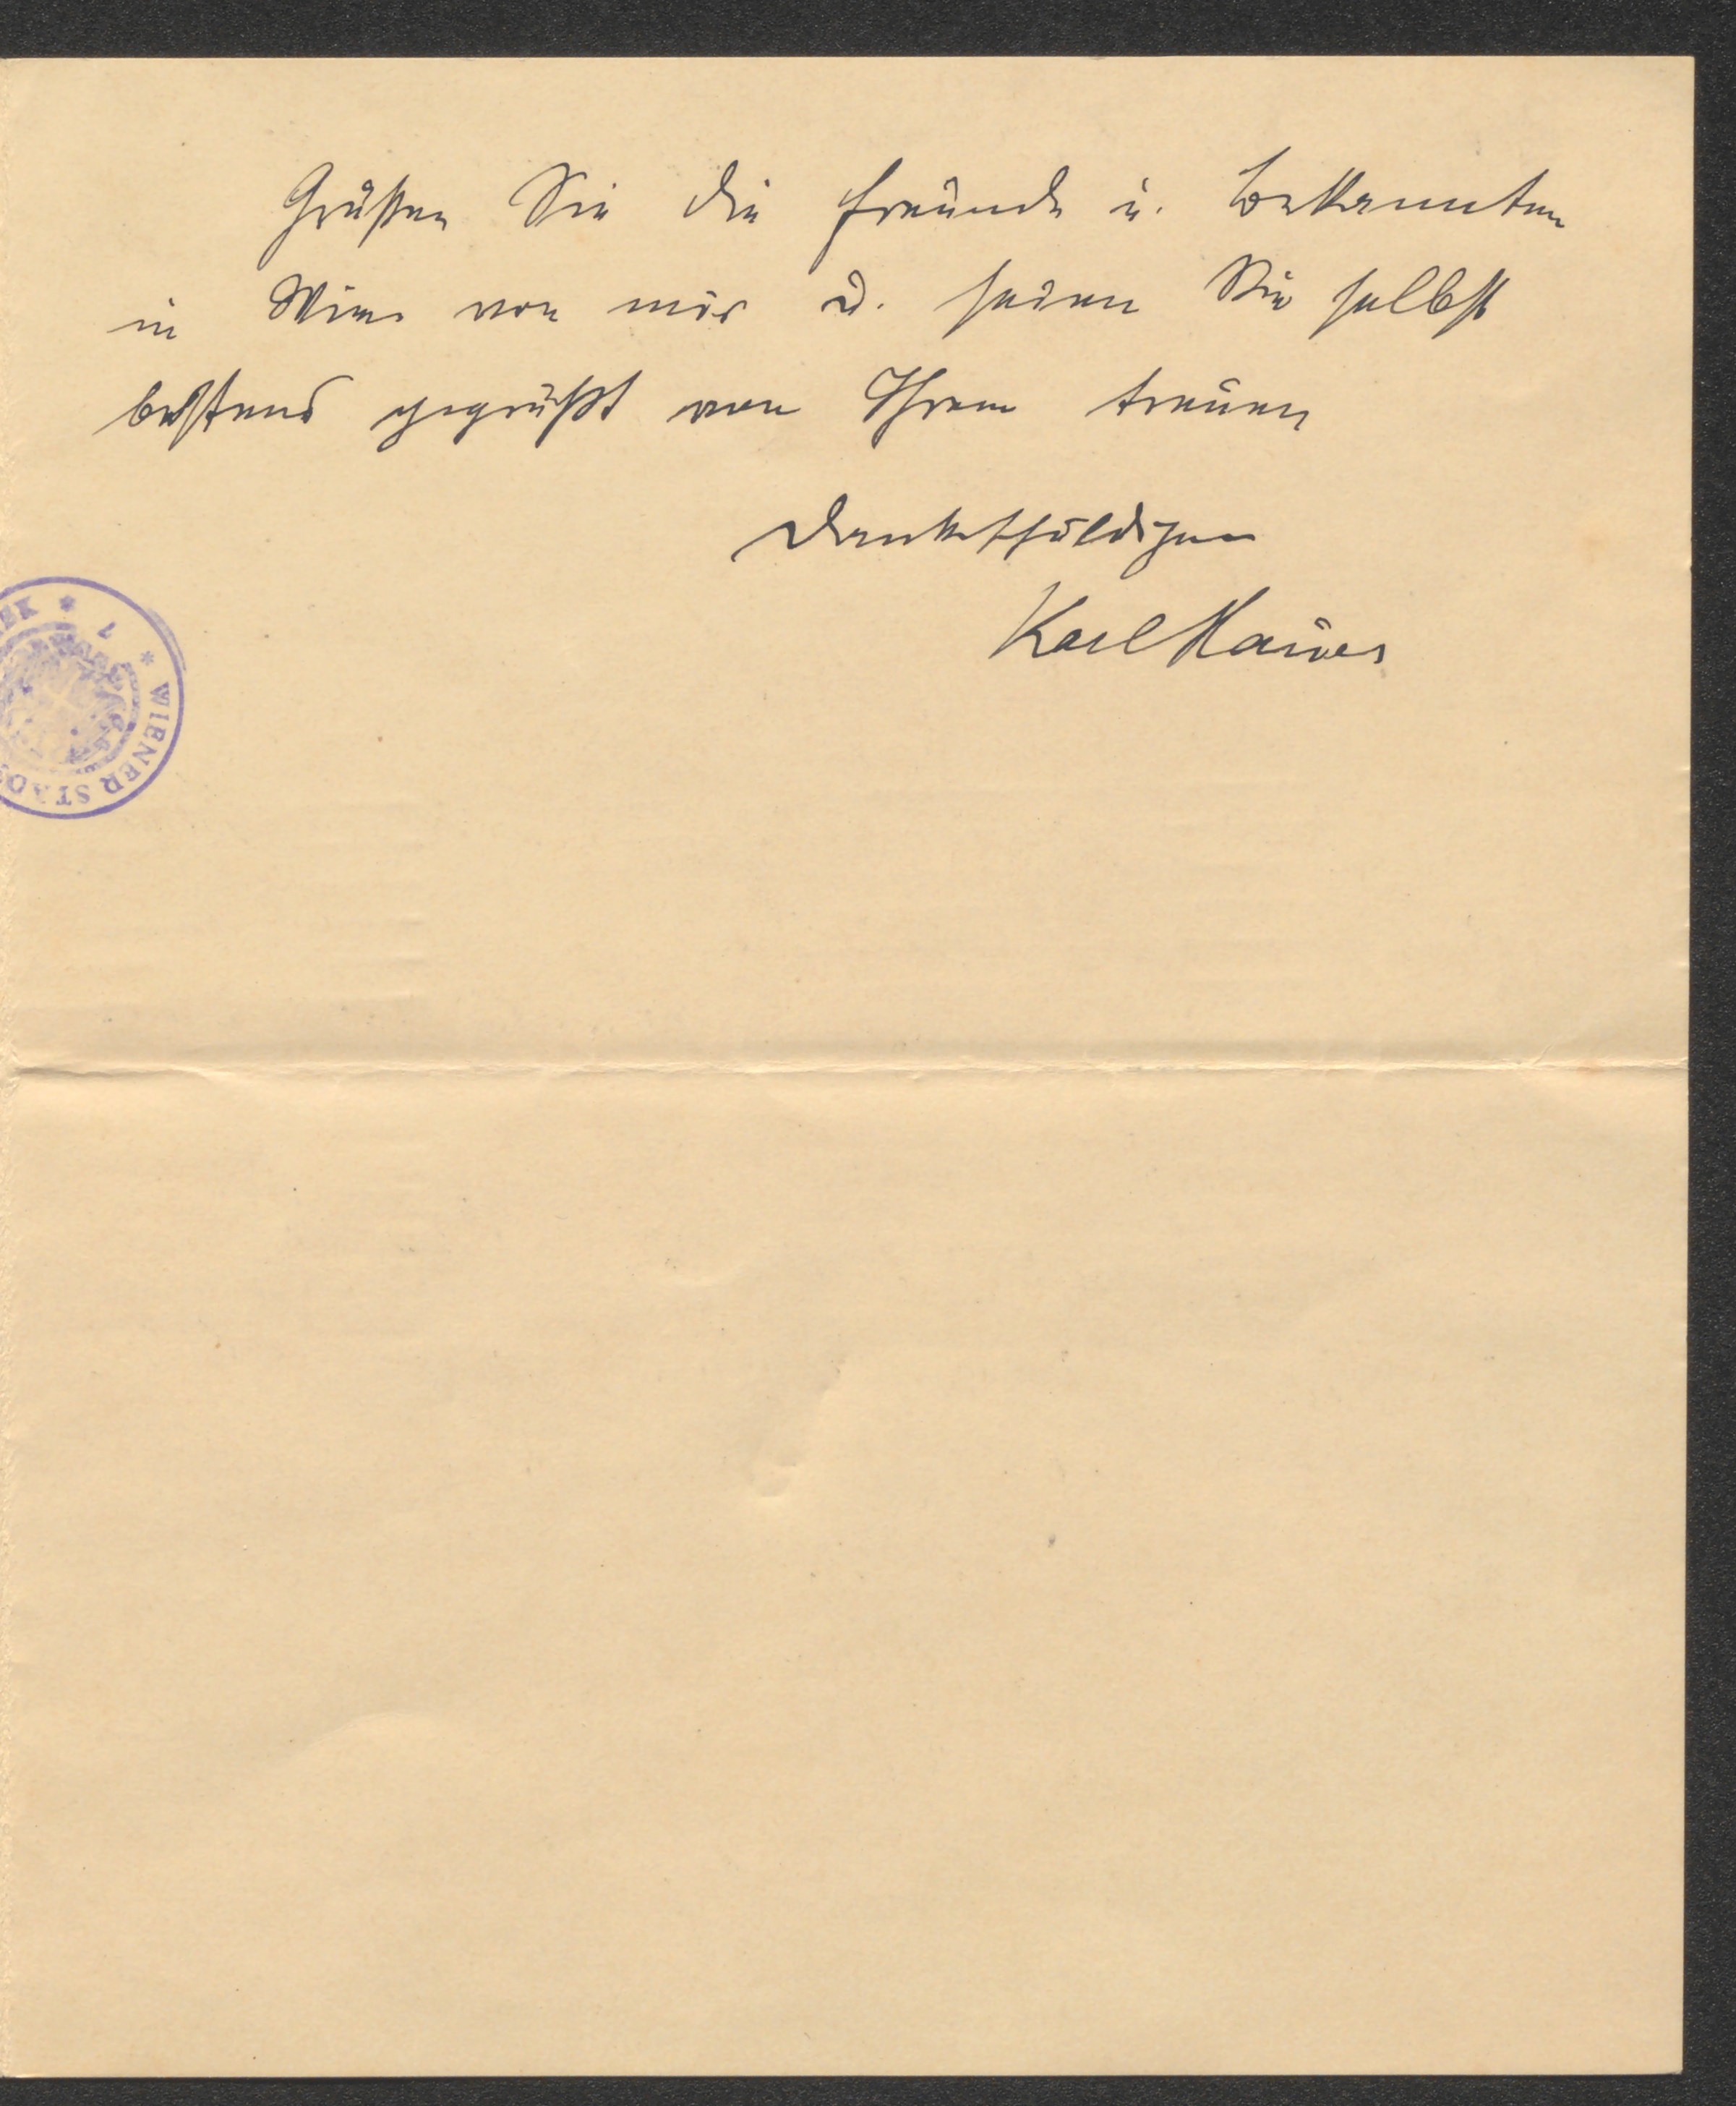 Grüßen Sie die Freunde u. Bekannten
in Wien von mir u. seien Sie selbst
bestens gegrüßt von Ihrem treuen
dankschuldigen
Karl
WIENER STADT
EK * 7 *